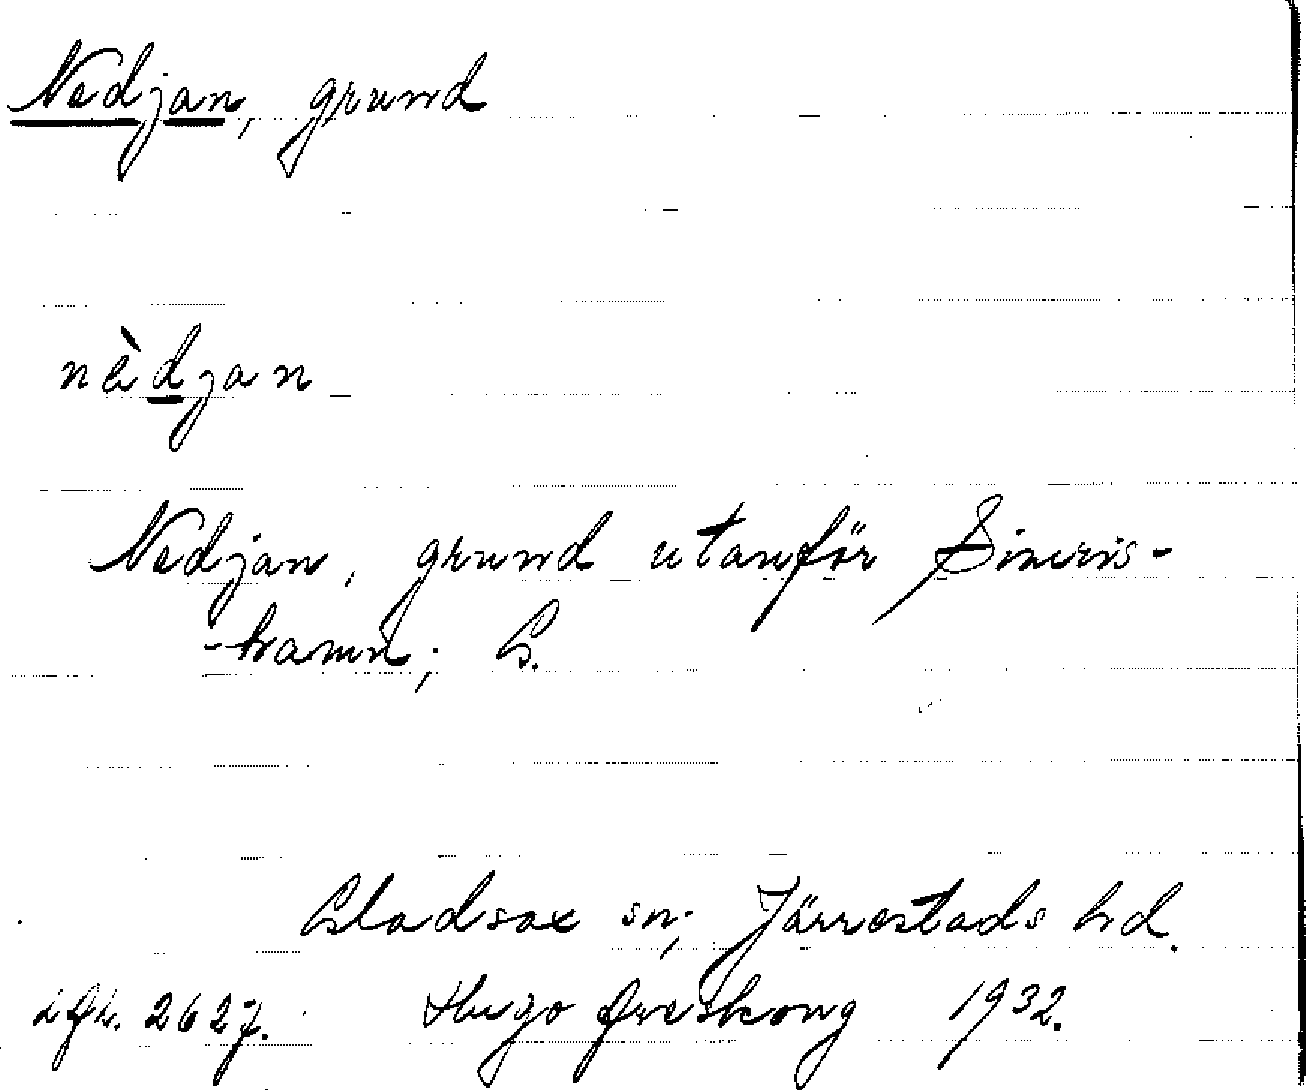 Nedjan, grund
nèdjan
Nedjan, grund utanför Simris-
-hamn; G.
Gladsax sn; Järrestads hd.
2627. Hugo Areskoug 1932.